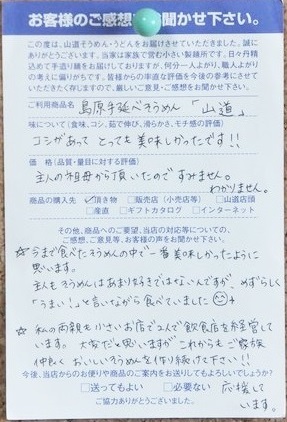 お客様のご感想 聞かせ下さい。
この度は、山道そうめん・うどんをお届けさせていただきました。誠に
ありがとうございます。当家は家族で営む小さい製麺所です。日々丹精
込めて手造り麺をお届けしておりますが、何分一人よがり、職人よがり
の考えに偏りがちです。皆様からの率直な評価を今後の参考にさせてい
ただきたく存じますので、厳しいご意見・ご感想をお聞かせ下さい。
ご利用商品名 島原手延べそうめん「山道」
味について(食味、コシ、茹で伸び、滑らかさ、キチ感の評価)
コシがあって とっても美味しかったです!!
価 格(品質・量目に対する評価)
主人の祖母から頂いたので すみません。
わかりません。
商品の購入先 ✓頂き物 □販売店(小売店等) □山道店頭
□産直 □ギフトカタログ □インターネット
その他、商品へのご要望、当店の対応等についての、
ご感想、ご意見等、お客様の声をお聞かせ下さい。
☆今まで食べたそうめんの中で一番美味しかったように
思います。
主人もそうめんはあまり好きではないんですが、めずらしく
「うまい!」と言いながら食べていました
☆ 私の両親も小さいお店で2人で飲食店を経営して
います。大変だと思いますが これからもご家族
仲良く おいしいそうめんを作り続けて下さい!!
今後、当店からのお便りや商品のご案内をお送りしてもよろしいでしょうか?
□送ってもよい □必要ない 応援して
ご協力ありがとうございました。 います。